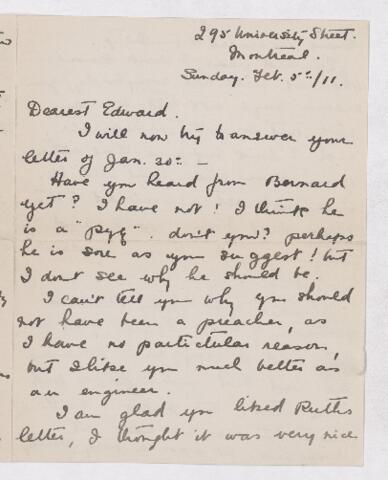 295 University Street.
Montreal.
Sunday. Feb. 5th/11.
Dearest Edward.
I will now try to answer your
letter of Jan. 30th –
Have you heard from Bernard
yet? I have not! I think he
is a "pyg". don't you? perhaps
he is sore as you suggest! but
I dont see why he should be.
I can't tell you why you should
not have been a preacher, as
I have no particular reason,
but I like you much better as
an engineer.
I am glad you liked Ruths
letter, I thought it was very nice